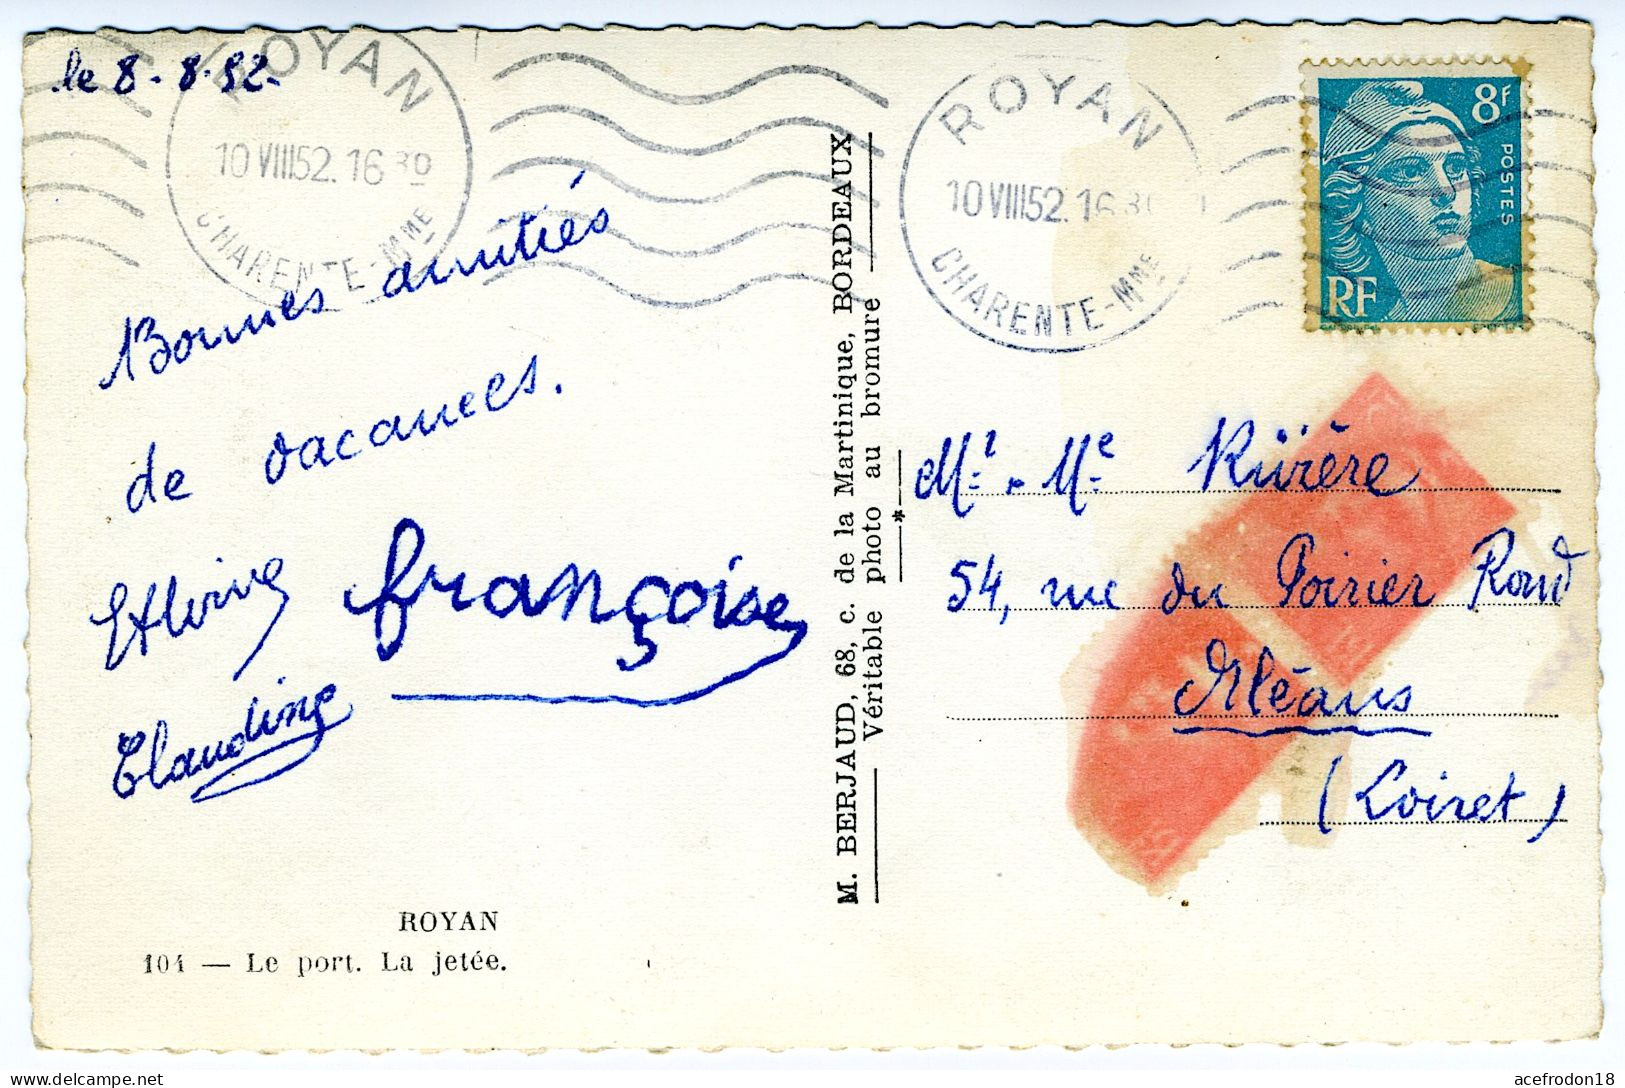 le 8-8-52-
ROYAN
10 VIII 52. 16 30
CHARENTE-MME
ROYAN
10 VIII 52. 16 30
CHARENTE-MME
8F
POSTES
RF
Bonnes amitiés
de vacances.
françoise
Claudine
M. BERJAUD, 68, c. de la Martinique, BORDEAUX
Véritable photo au bromure
*
Mr. Me Rivière
54, rue du Poirier Rond
Orléans
(Loiret)
ROYAN
104 — Le port. La jetée.
Delcampe.net
acefrodon18